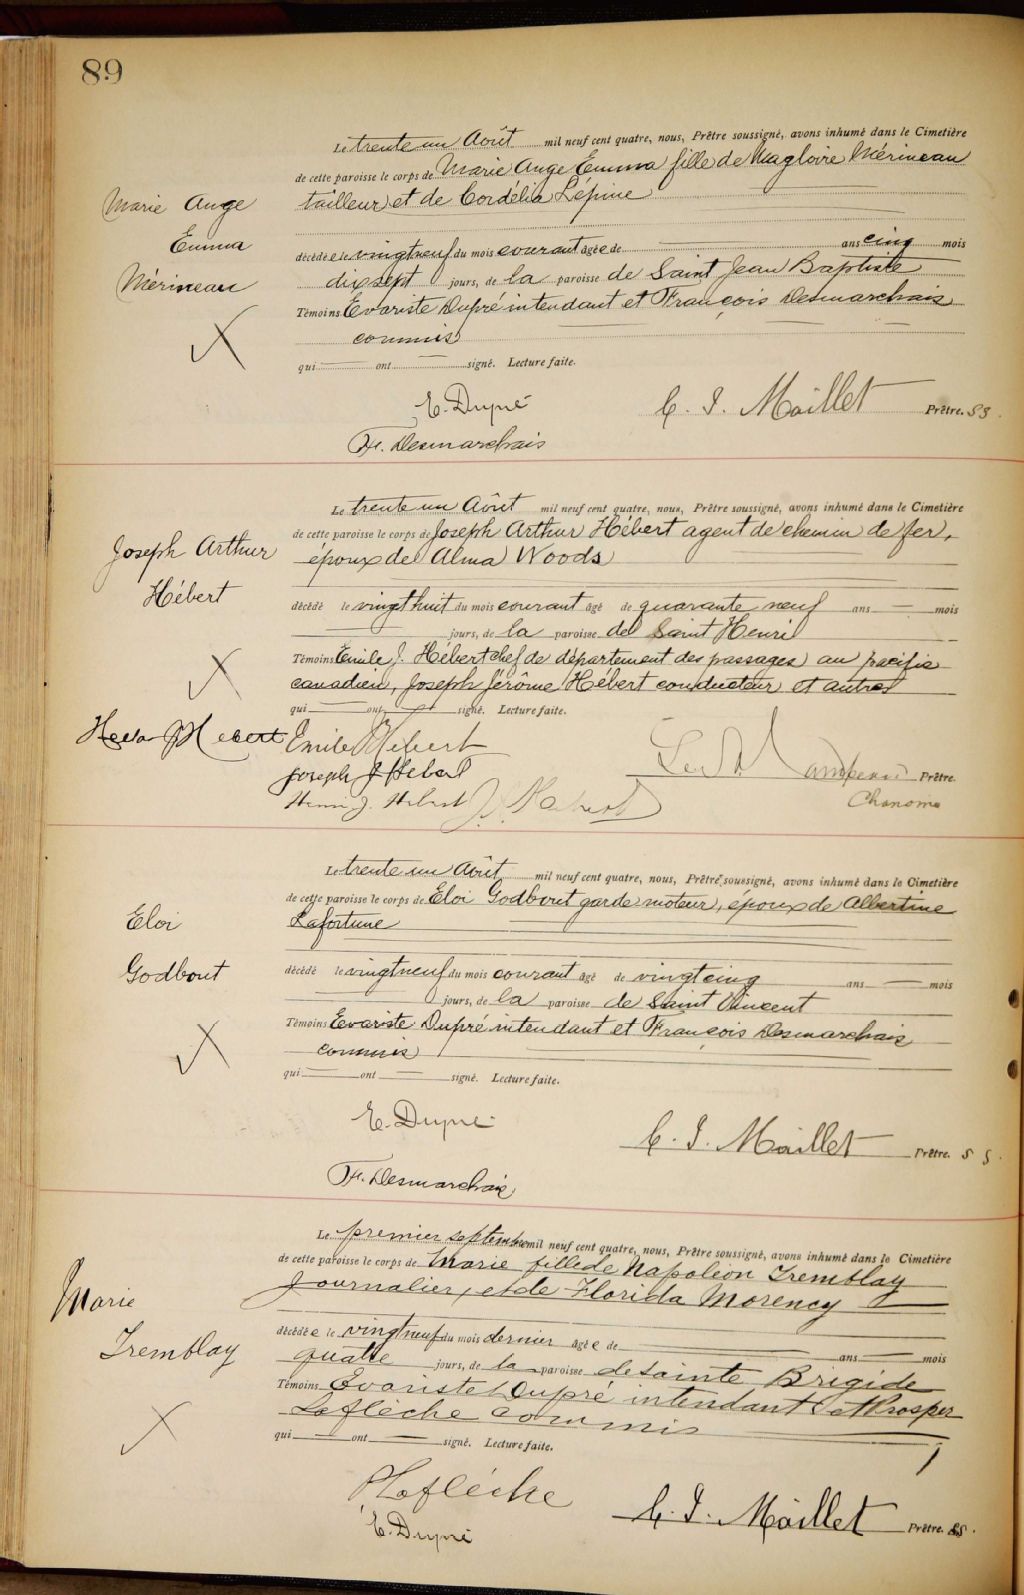 89
Le trente un Août mil neuf cent quatre, nous, Prêtre soussigné, avons inhumé dans le Cimetière
de cette paroisse le corps de Marie Ange Emma fille de Magloire Mérineau
tailleur et de Cordélia Lépine
Marie Ange
Emma
Mérineau
décédée le vingtneuf du mois courant âgée de ans cinq mois
dixsept jours, de la paroisse de Saint Jean Baptiste
Témoins Evariste Dupré intendant et François Desmarchais
commis
qui ont signé. Lecture faite.
E. Dupré
C. I. Maillet Prêtre. SS.
F. Desmarchais
Le trente un Août mil neuf cent quatre, nous, Prêtre soussigné, avons inhumé dans le Cimetière
de cette paroisse le corps de Joseph Arthur Hébert agent de chemin de fer,
époux de Alma Woods
Joseph Arthur
Hébert
décédé le vingthuit du mois courant âgé de quarante neuf ans — mois
jours, de la paroisse de Saint Henri
Témoins Emile J. Hébert chef de département des passages au pacific
canadien, Joseph Jérôme Hébert conducteur et autres
qui — ont — signé. Lecture faite.
Hebert Emile Hébert
Joseph J Hebert
Prêtre.
Henri J. Hebert
Chanoine
Le trente un Août mil neuf cent quatre, nous, Prêtre soussigné, avons inhumé dans le Cimetière
de cette paroisse le corps de Eloi Godbout garde moteur, époux de Albertine
Lafortune
Eloi
Godbout
décédé le vingtneuf du mois courant âgé de vingtcinq ans — mois
jours, de la paroisse de Saint Vincent
Témoins Evariste Dupré intendant et François Desmarchais
commis
qui — ont — signé. Lecture faite.
E. Dupré
C. I. Maillet Prêtre. S S.
F. Desmarchais
Le premier septembre mil neuf cent quatre, nous, Prêtre soussigné, avons inhumé dans le Cimetière
de cette paroisse le corps de Marie fille de Napoléon Tremblay
Journalier, et de Florida Morency
Marie
Tremblay
décédée le vingtneuf du mois dernier âgée de — ans — mois
quatre jours, de la paroisse de Sainte Brigide
Témoins Evariste Dupré intendant et Prosper
Laflèche commis
qui — ont — signé. Lecture faite.
P Laflèche
C. I. Maillet Prêtre. SS.
E. Dupré